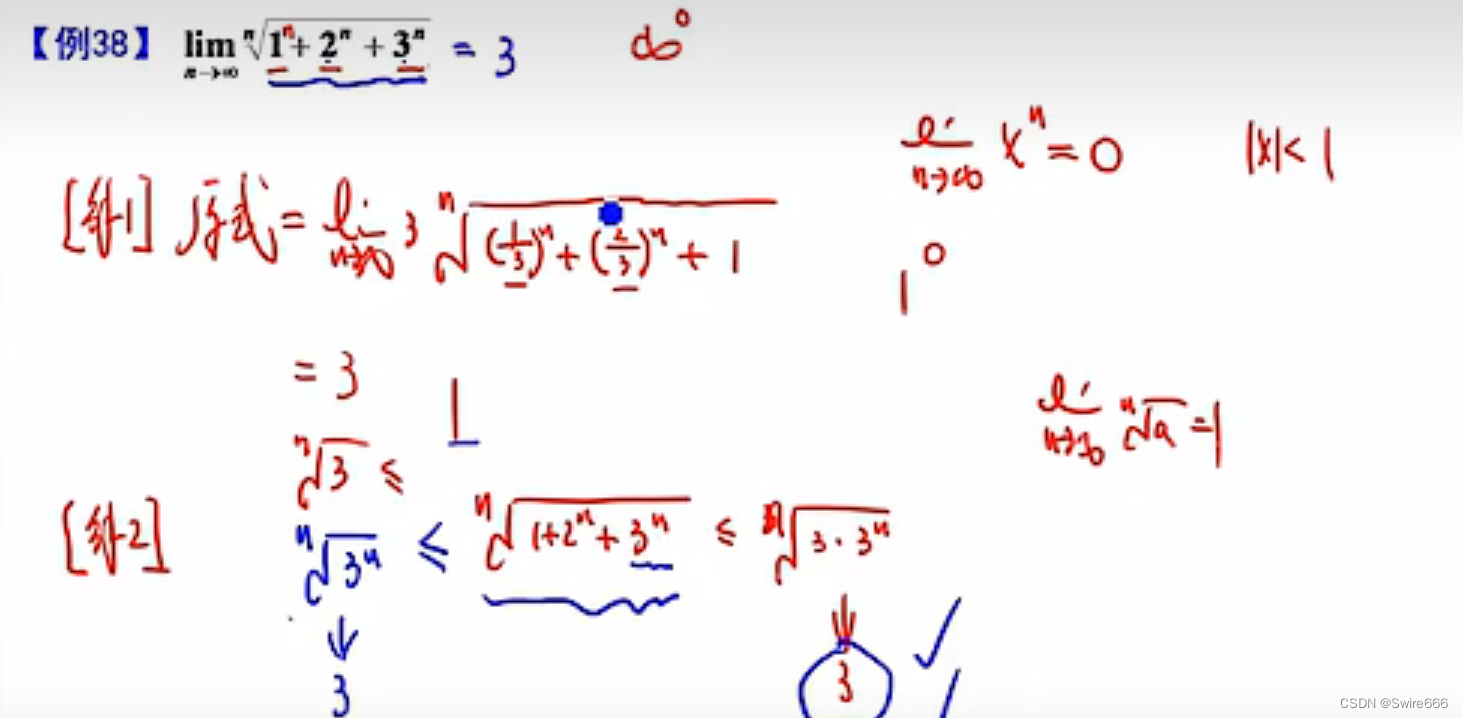 【例38】 lim n→∞ ⁿ√(1ⁿ + 2ⁿ + 3ⁿ) = 3 ∞⁰
lim n→∞ xⁿ = 0 |x| < 1
[解1] 原式 = lim n→∞ 3 ⁿ√((1/3)ⁿ + (2/3)ⁿ + 1) 1⁰
= 3 1
lim n→∞ ⁿ√a = 1
ⁿ√3 ≤
[解2] ⁿ√(3ⁿ) ≤ ⁿ√(1+2ⁿ+3ⁿ) ≤ ⁿ√(3·3ⁿ)
↓ ↓ ✓
3 3
CSDN @Swire666